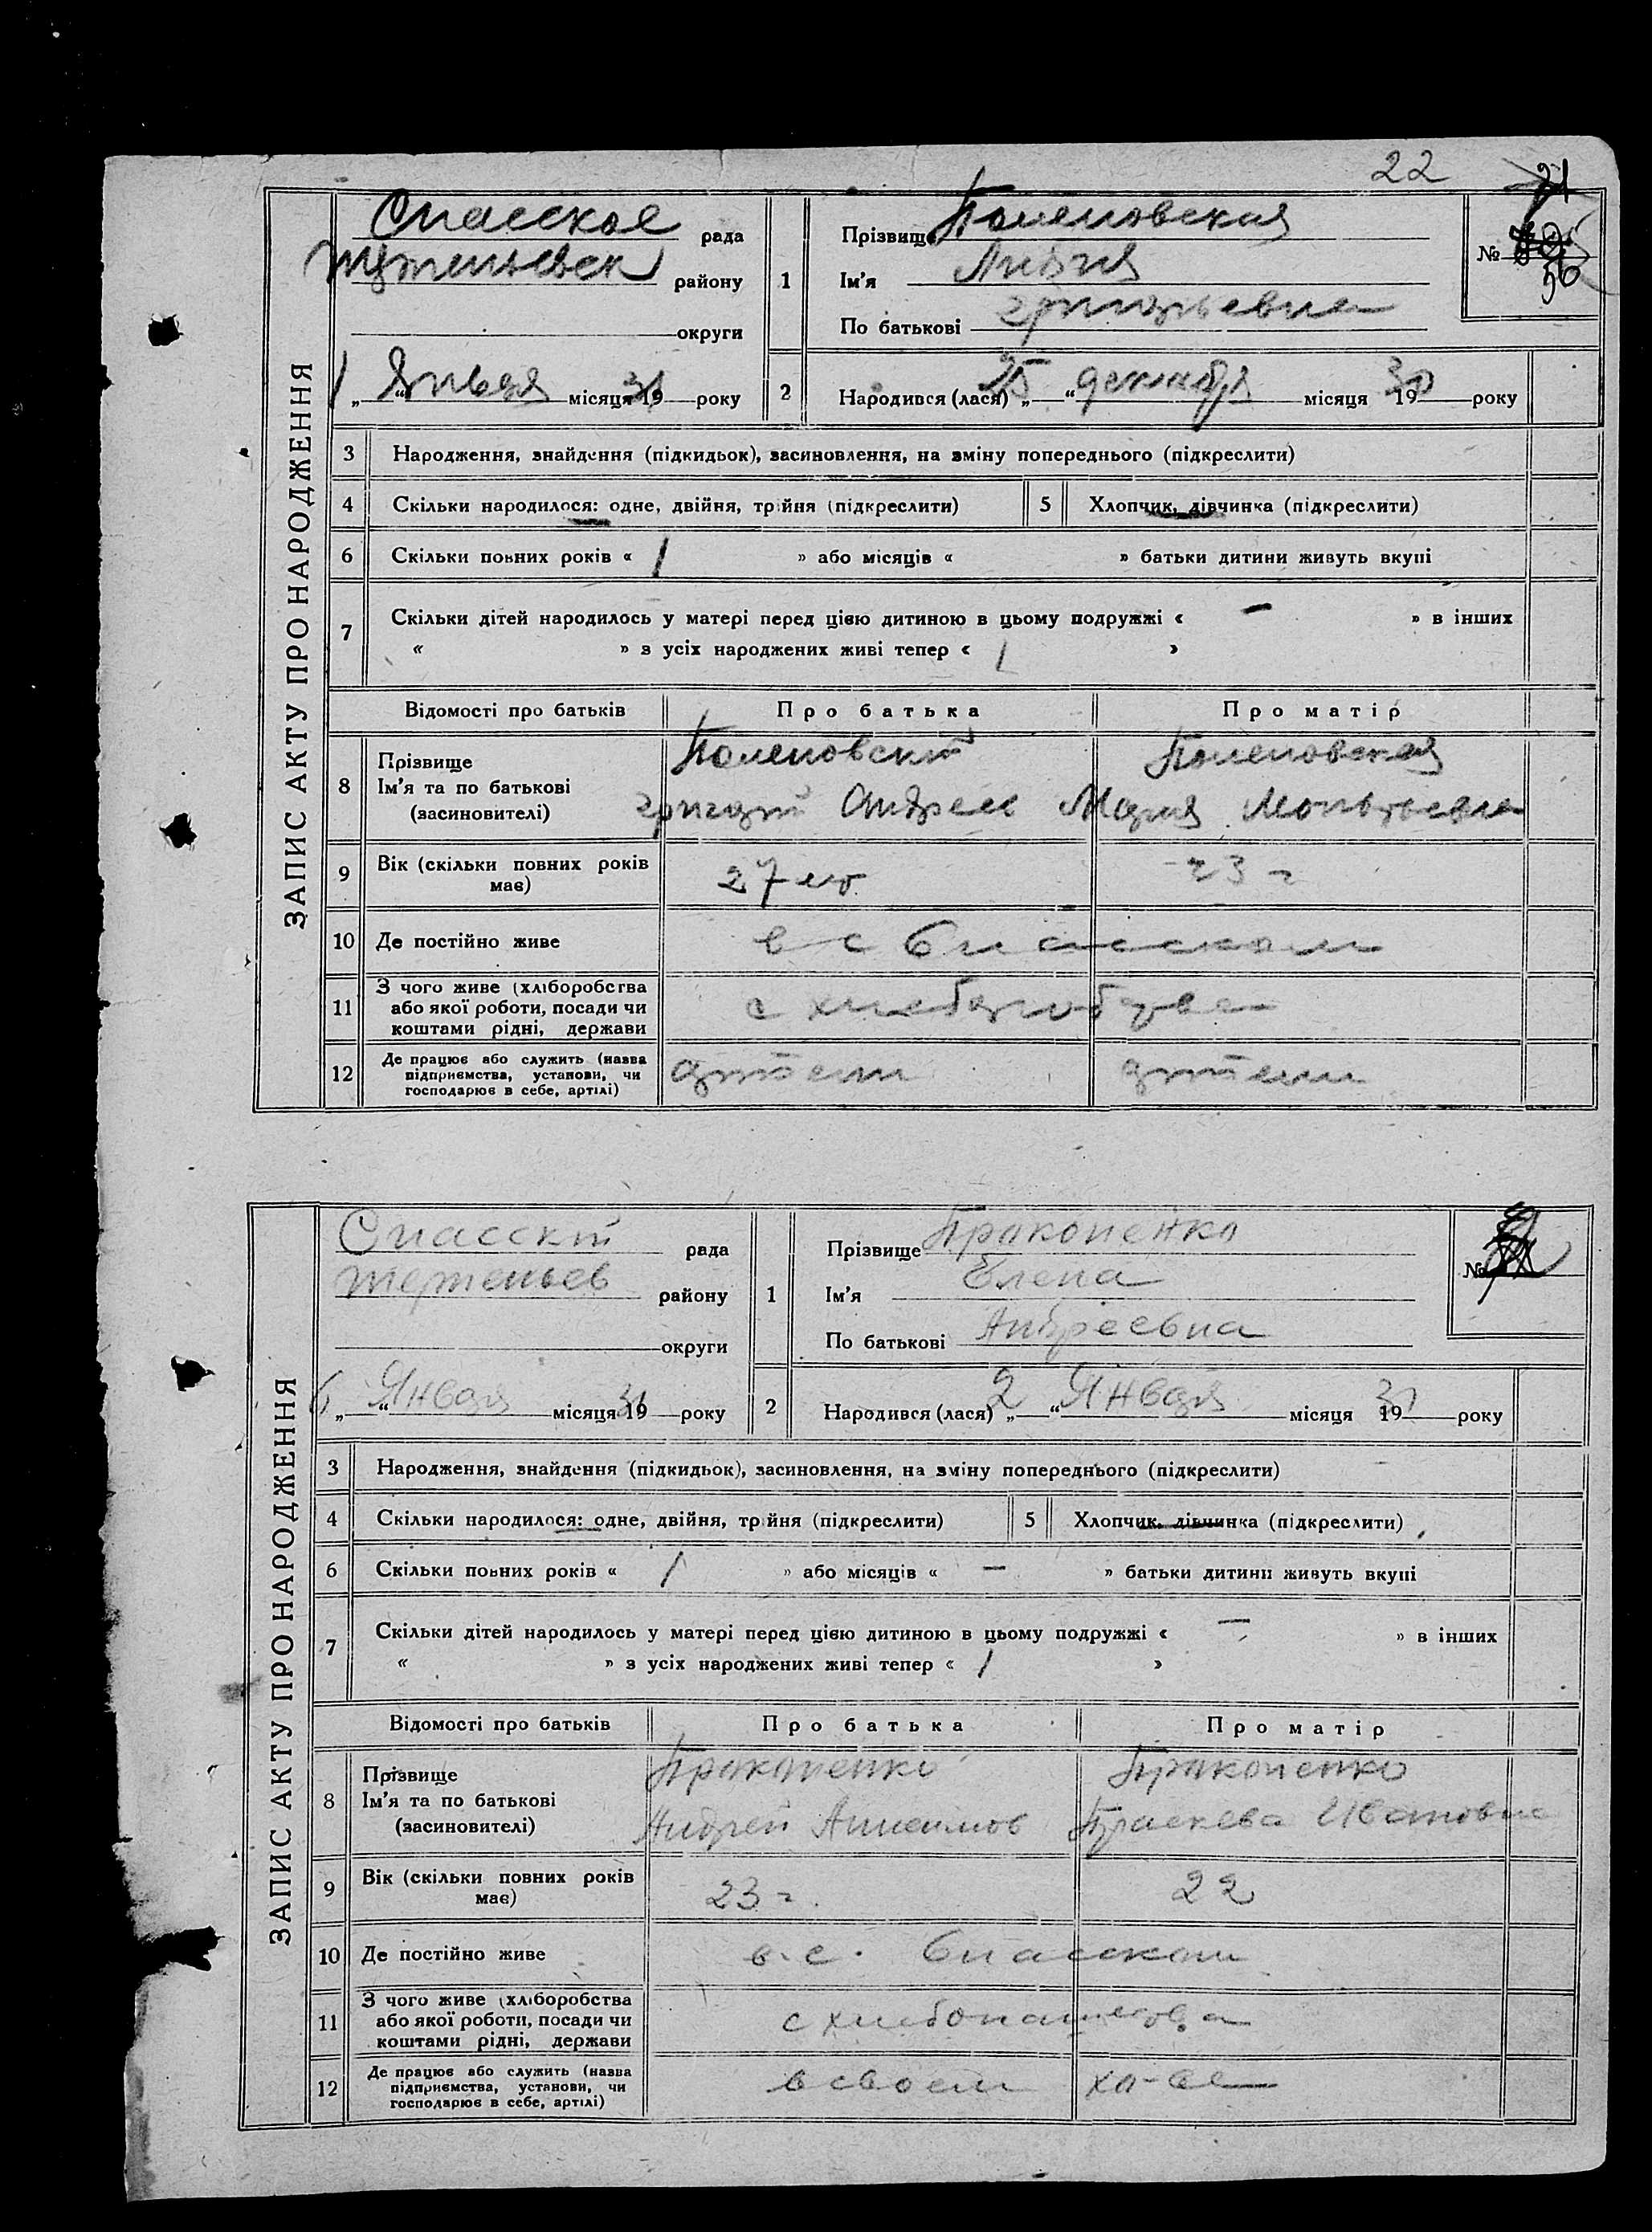 22
21
ЗАПИС АКТУ ПРО НАРОДЖЕННЯ
Спасское рада
району
округи
1 Прізвище
Ім'я Лидия
По батькові григорьевна
№ 56
1 „ “ Января місяця 1931 року
2 Народився (лася) „ 25 “ декабря місяця 1930 року
3 Народження, знайдення (підкидьок), засиновлення, на зміну попереднього (підкреслити)
4 Скільки народилося: одне, двійня, трійня (підкреслити) 5 Хлопчик, дівчинка (підкреслити)
6 Скільки повних років « 1 » або місяців « » батьки дитини живуть вкупі
7 Скільки дітей народилось у матері перед цією дитиною в цьому подружжі « – » в інших
« » з усіх народжених живі тепер « 1 »
Відомості про батьків Про батька Про матір
8 Прізвище
Ім'я та по батькові григорий Андреев Мария
(засиновителі)
9 Вік (скільки повних років має) 27 лет 23 г
10 Де постійно живе в с Спасском
11 З чого живе (хліборобства або якої роботи, посади чи коштами рідні, держави с
12 Де працює або служить (назва підприємства, установи, чи господарює в себе, артілі)
ЗАПИС АКТУ ПРО НАРОДЖЕННЯ
Спасский рада
району
округи
1 Прізвище Пракопенко
Ім'я Елена
По батькові Андреевна
№
„ “ Января місяця 1931 року
2 Народився (лася) „ 2 “ Января місяця 19 року
3 Народження, знайдення (підкидьок), засиновлення, на зміну попереднього (підкреслити)
4 Скільки народилося: одне, двійня, трійня (підкреслити) 5 Хлопчик, дівчинка (підкреслити)
6 Скільки повних років « 1 » або місяців « – » батьки дитини живуть вкупі
7 Скільки дітей народилось у матері перед цією дитиною в цьому подружжі « – » в інших
« » з усіх народжених живі тепер « 1 »
Відомості про батьків Про батька Про матір
8 Прізвище Пракопенко Пракопенко
Ім'я та по батькові Андрей Анисимов Праскева Ивановна
(засиновителі)
9 Вік (скільки повних років має) 23 г. 22
10 Де постійно живе в. с. Спасском
11 З чого живе (хліборобства або якої роботи, посади чи коштами рідні, держави с
12 Де працює або служить (назва підприємства, установи, чи господарює в себе, артілі) в своем хо-ве